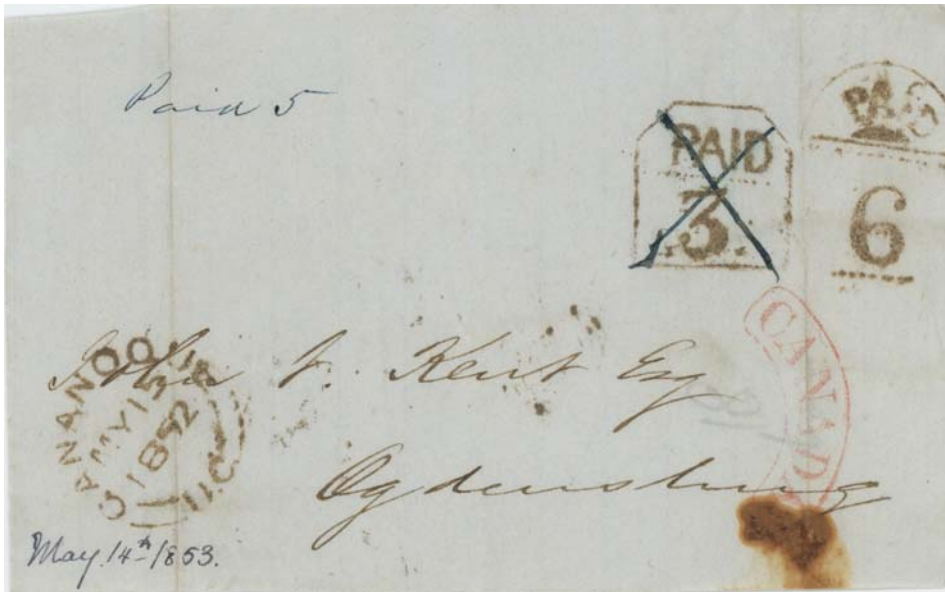 Paid 5
PAID
3
PAID
6
CANADA
GANANOQUE
MY 15
1852
U.C.
John J. Kent Esq
Ogdensburg
May. 14th 1853.